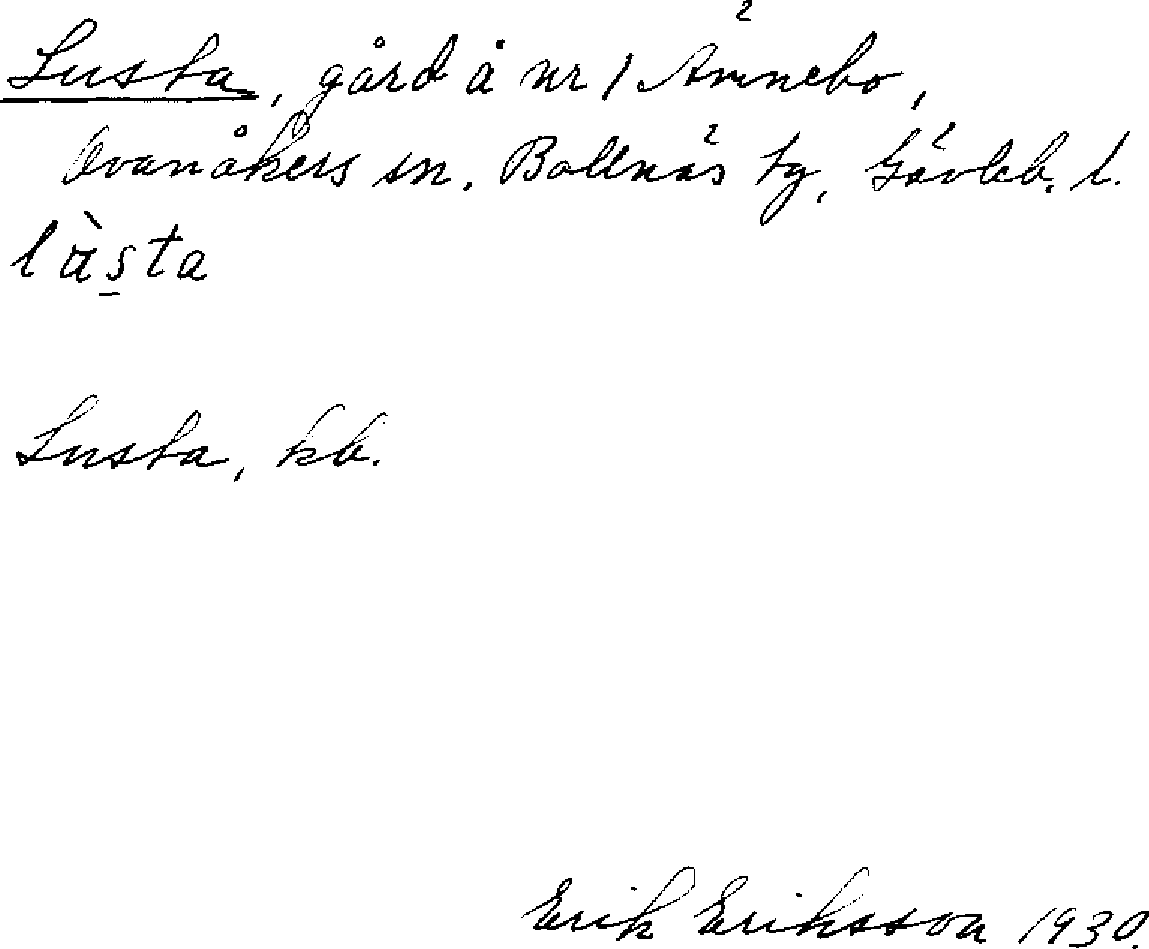 Lusta, gård å nr 1 Ämnebo,
Ovanåkers sn. Bollnäs tg, Gävleb. l.
làs̠ta
Lusta, kb.
Erik Eriksson 1930.